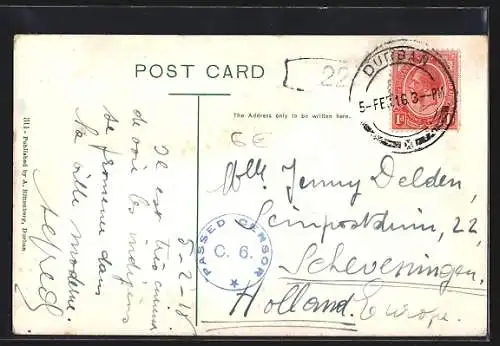 POST CARD
22
DURBAN
5-FEB 16 3-PM
The Address only to be written here.
6E
Melle Jenny Delden,
22,
Scheveningen,
Holland. Europe.
PASSED CENSOR
C. 6.
5-2-16
Il est très
de voir les indigens
se promener dans
la ville moderne.
Alfred
311 - Published by A. Rittenberg, Durban